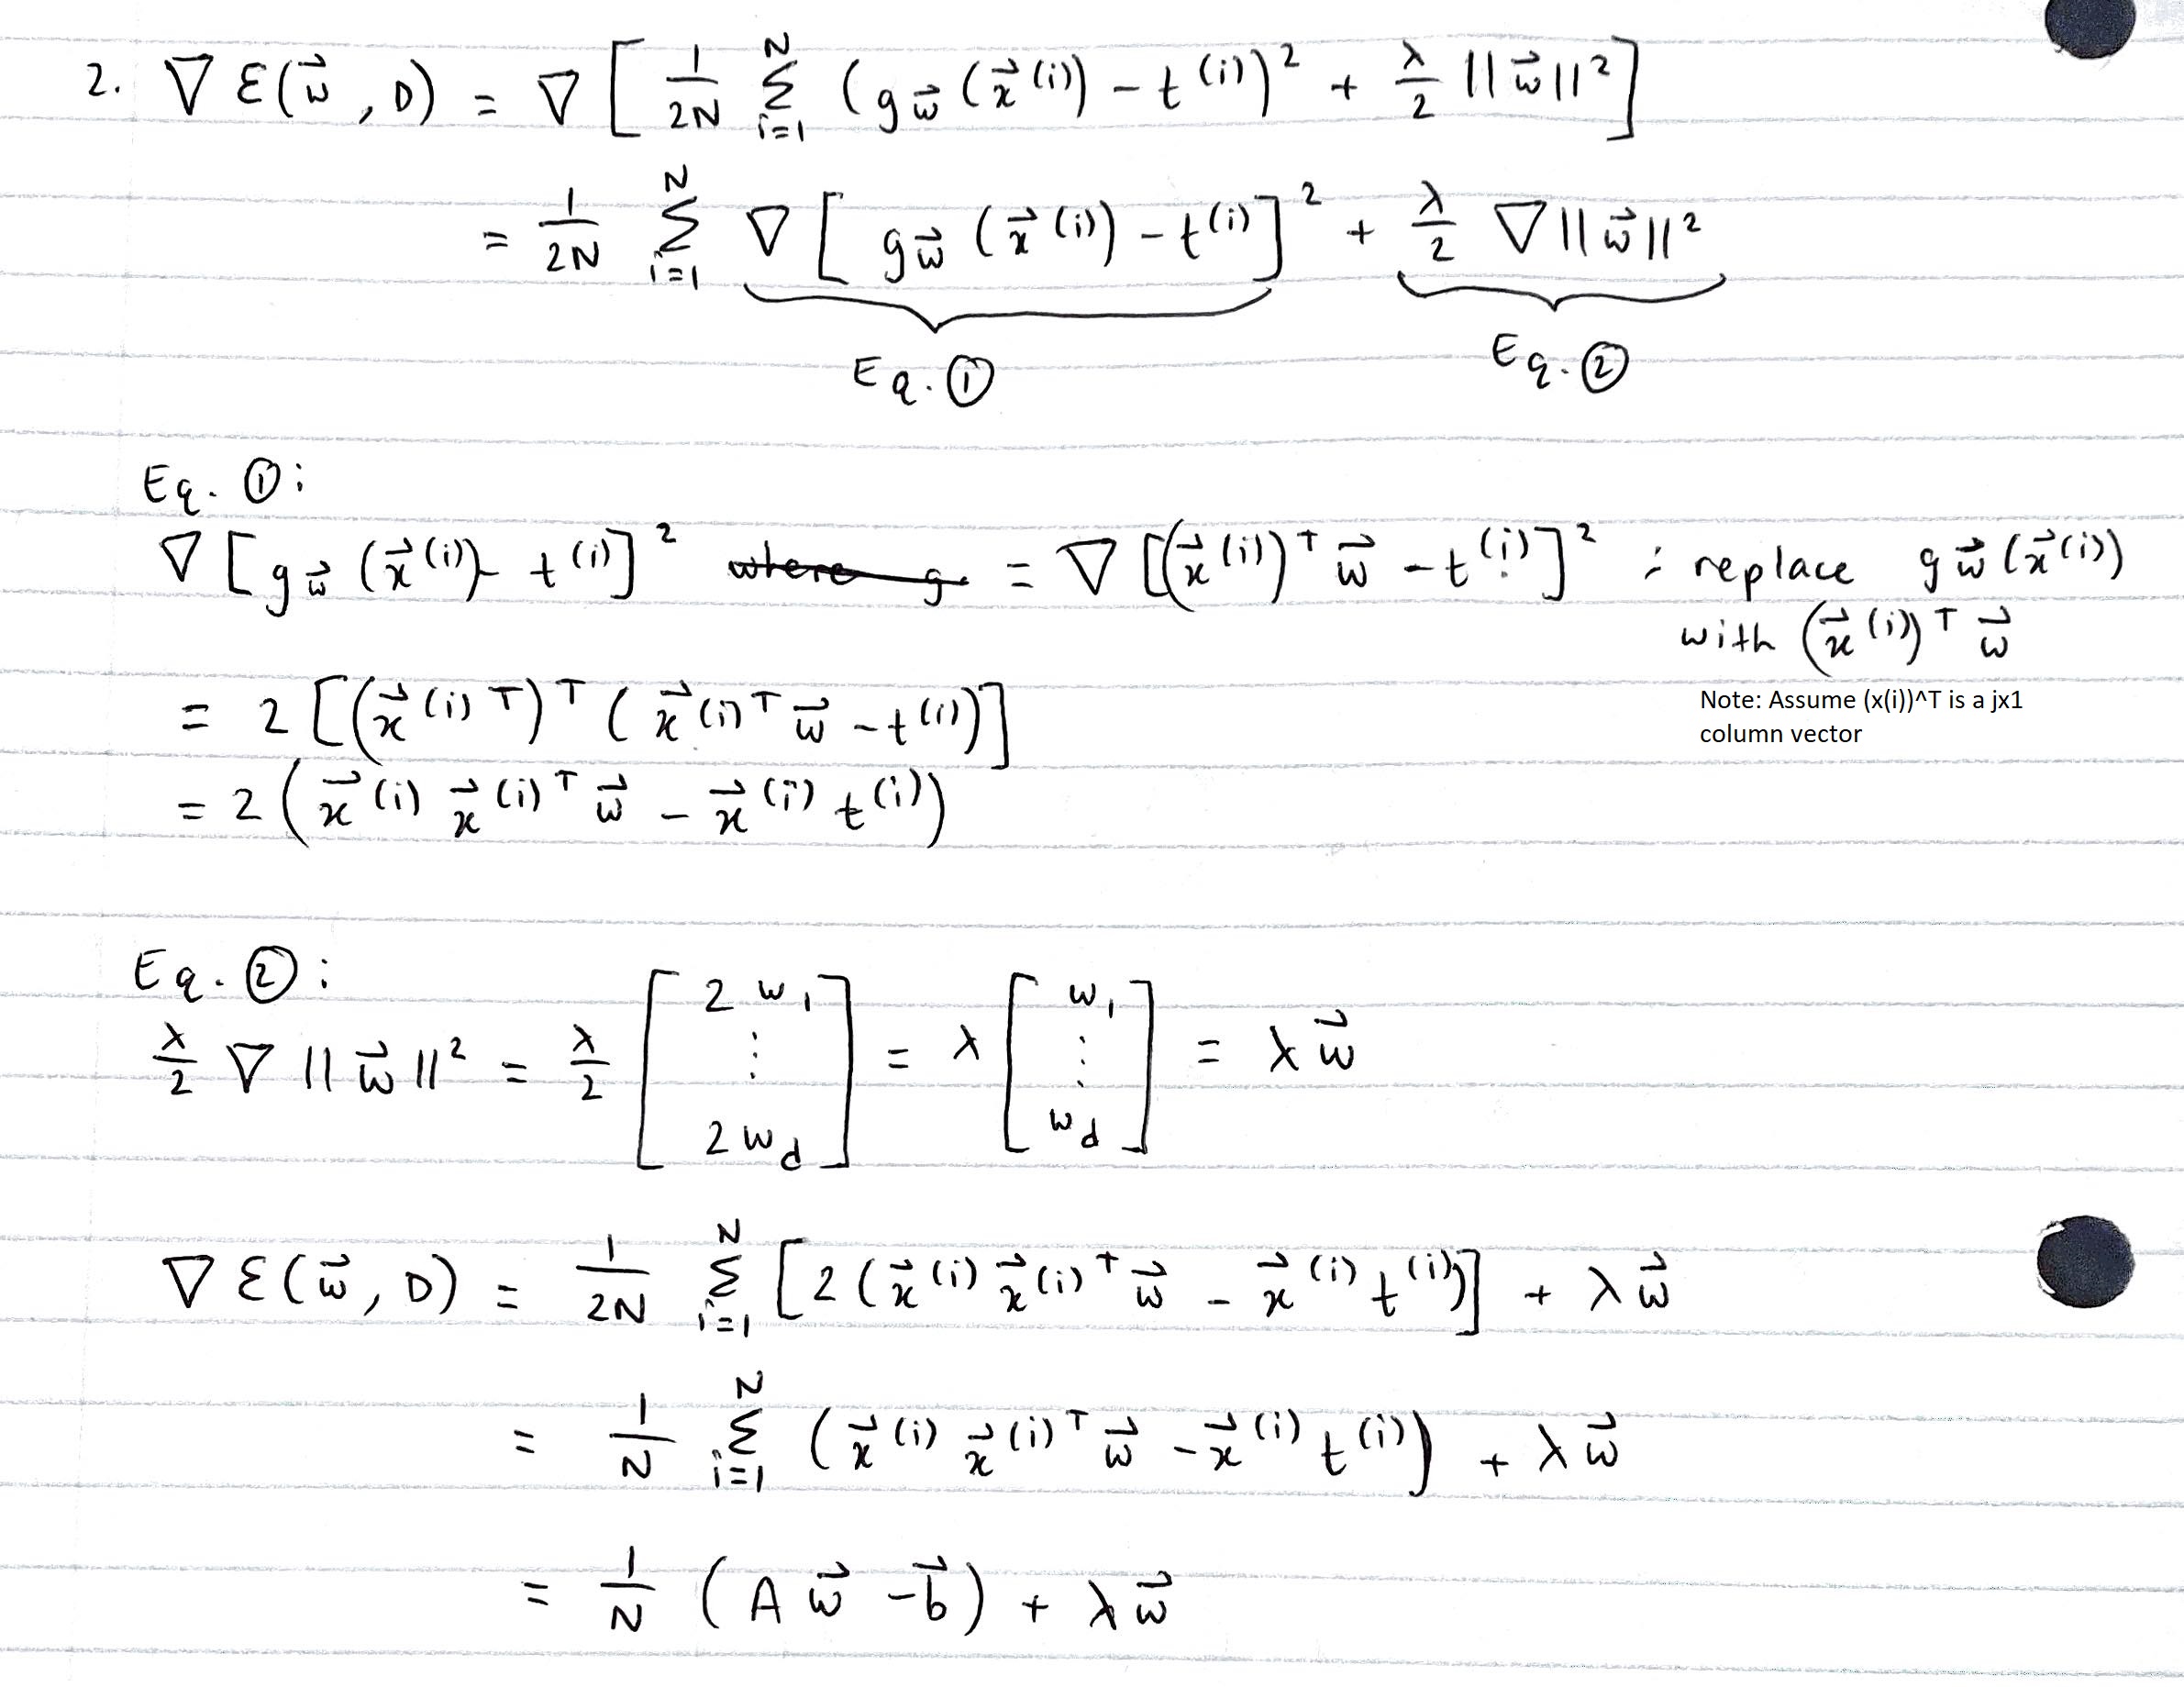 2. ∇ Ɛ(w⃗, D) = ∇ [ 1/2N Σ_{i=1}^{N} (g_w⃗ (x⃗^(i)) - t^(i))² + λ/2 ||w⃗||² ]
= 1/2N Σ_{i=1}^{N} ∇ [ g_w⃗ (x⃗^(i)) - t^(i) ]² + λ/2 ∇||w⃗||²
Eq. ① Eq. ②
Eq. ①:
∇ [g_w⃗ (x⃗^(i)) - t^(i)]² where g = ∇ [(x⃗^(i))^T w⃗ - t^(i)]² : replace g_w⃗ (x⃗^(i))
with (x⃗^(i))^T w⃗
Note: Assume (x(i))^T is a jx1
column vector
= 2 [(x⃗^(i)T)^T (x⃗^(i)T w⃗ - t^(i))]
= 2 (x⃗^(i) x⃗^(i)T w⃗ - x⃗^(i) t^(i))
Eq. ②:
λ/2 ∇ ||w⃗||² = λ/2 [ 2w₁ ⋮ 2w_d ] = λ [ w₁ ⋮ w_d ] = λw⃗
∇ Ɛ(w⃗, D) = 1/2N Σ_{i=1}^{N} [2 (x⃗^(i) x⃗^(i)T w⃗ - x⃗^(i) t^(i))] + λw⃗
= 1/N Σ_{i=1}^{N} (x⃗^(i) x⃗^(i)T w⃗ - x⃗^(i) t^(i)) + λw⃗
= 1/N (A w⃗ - b⃗) + λw⃗